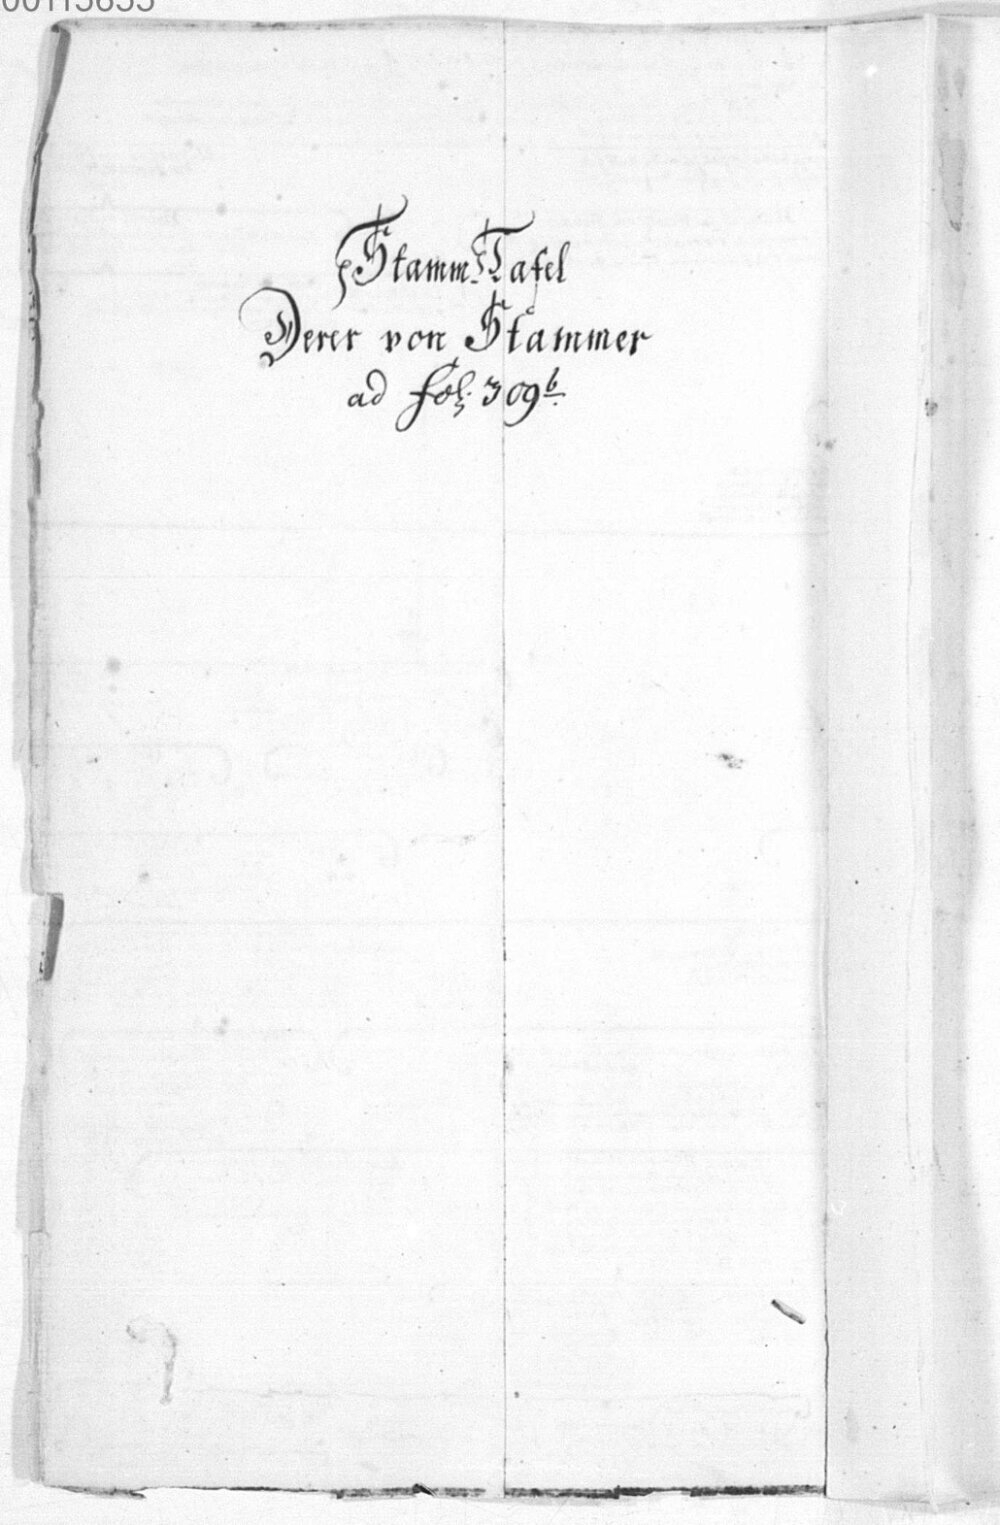 Stamm-Tafel
Derer von Stammer
ad fol: 309b.